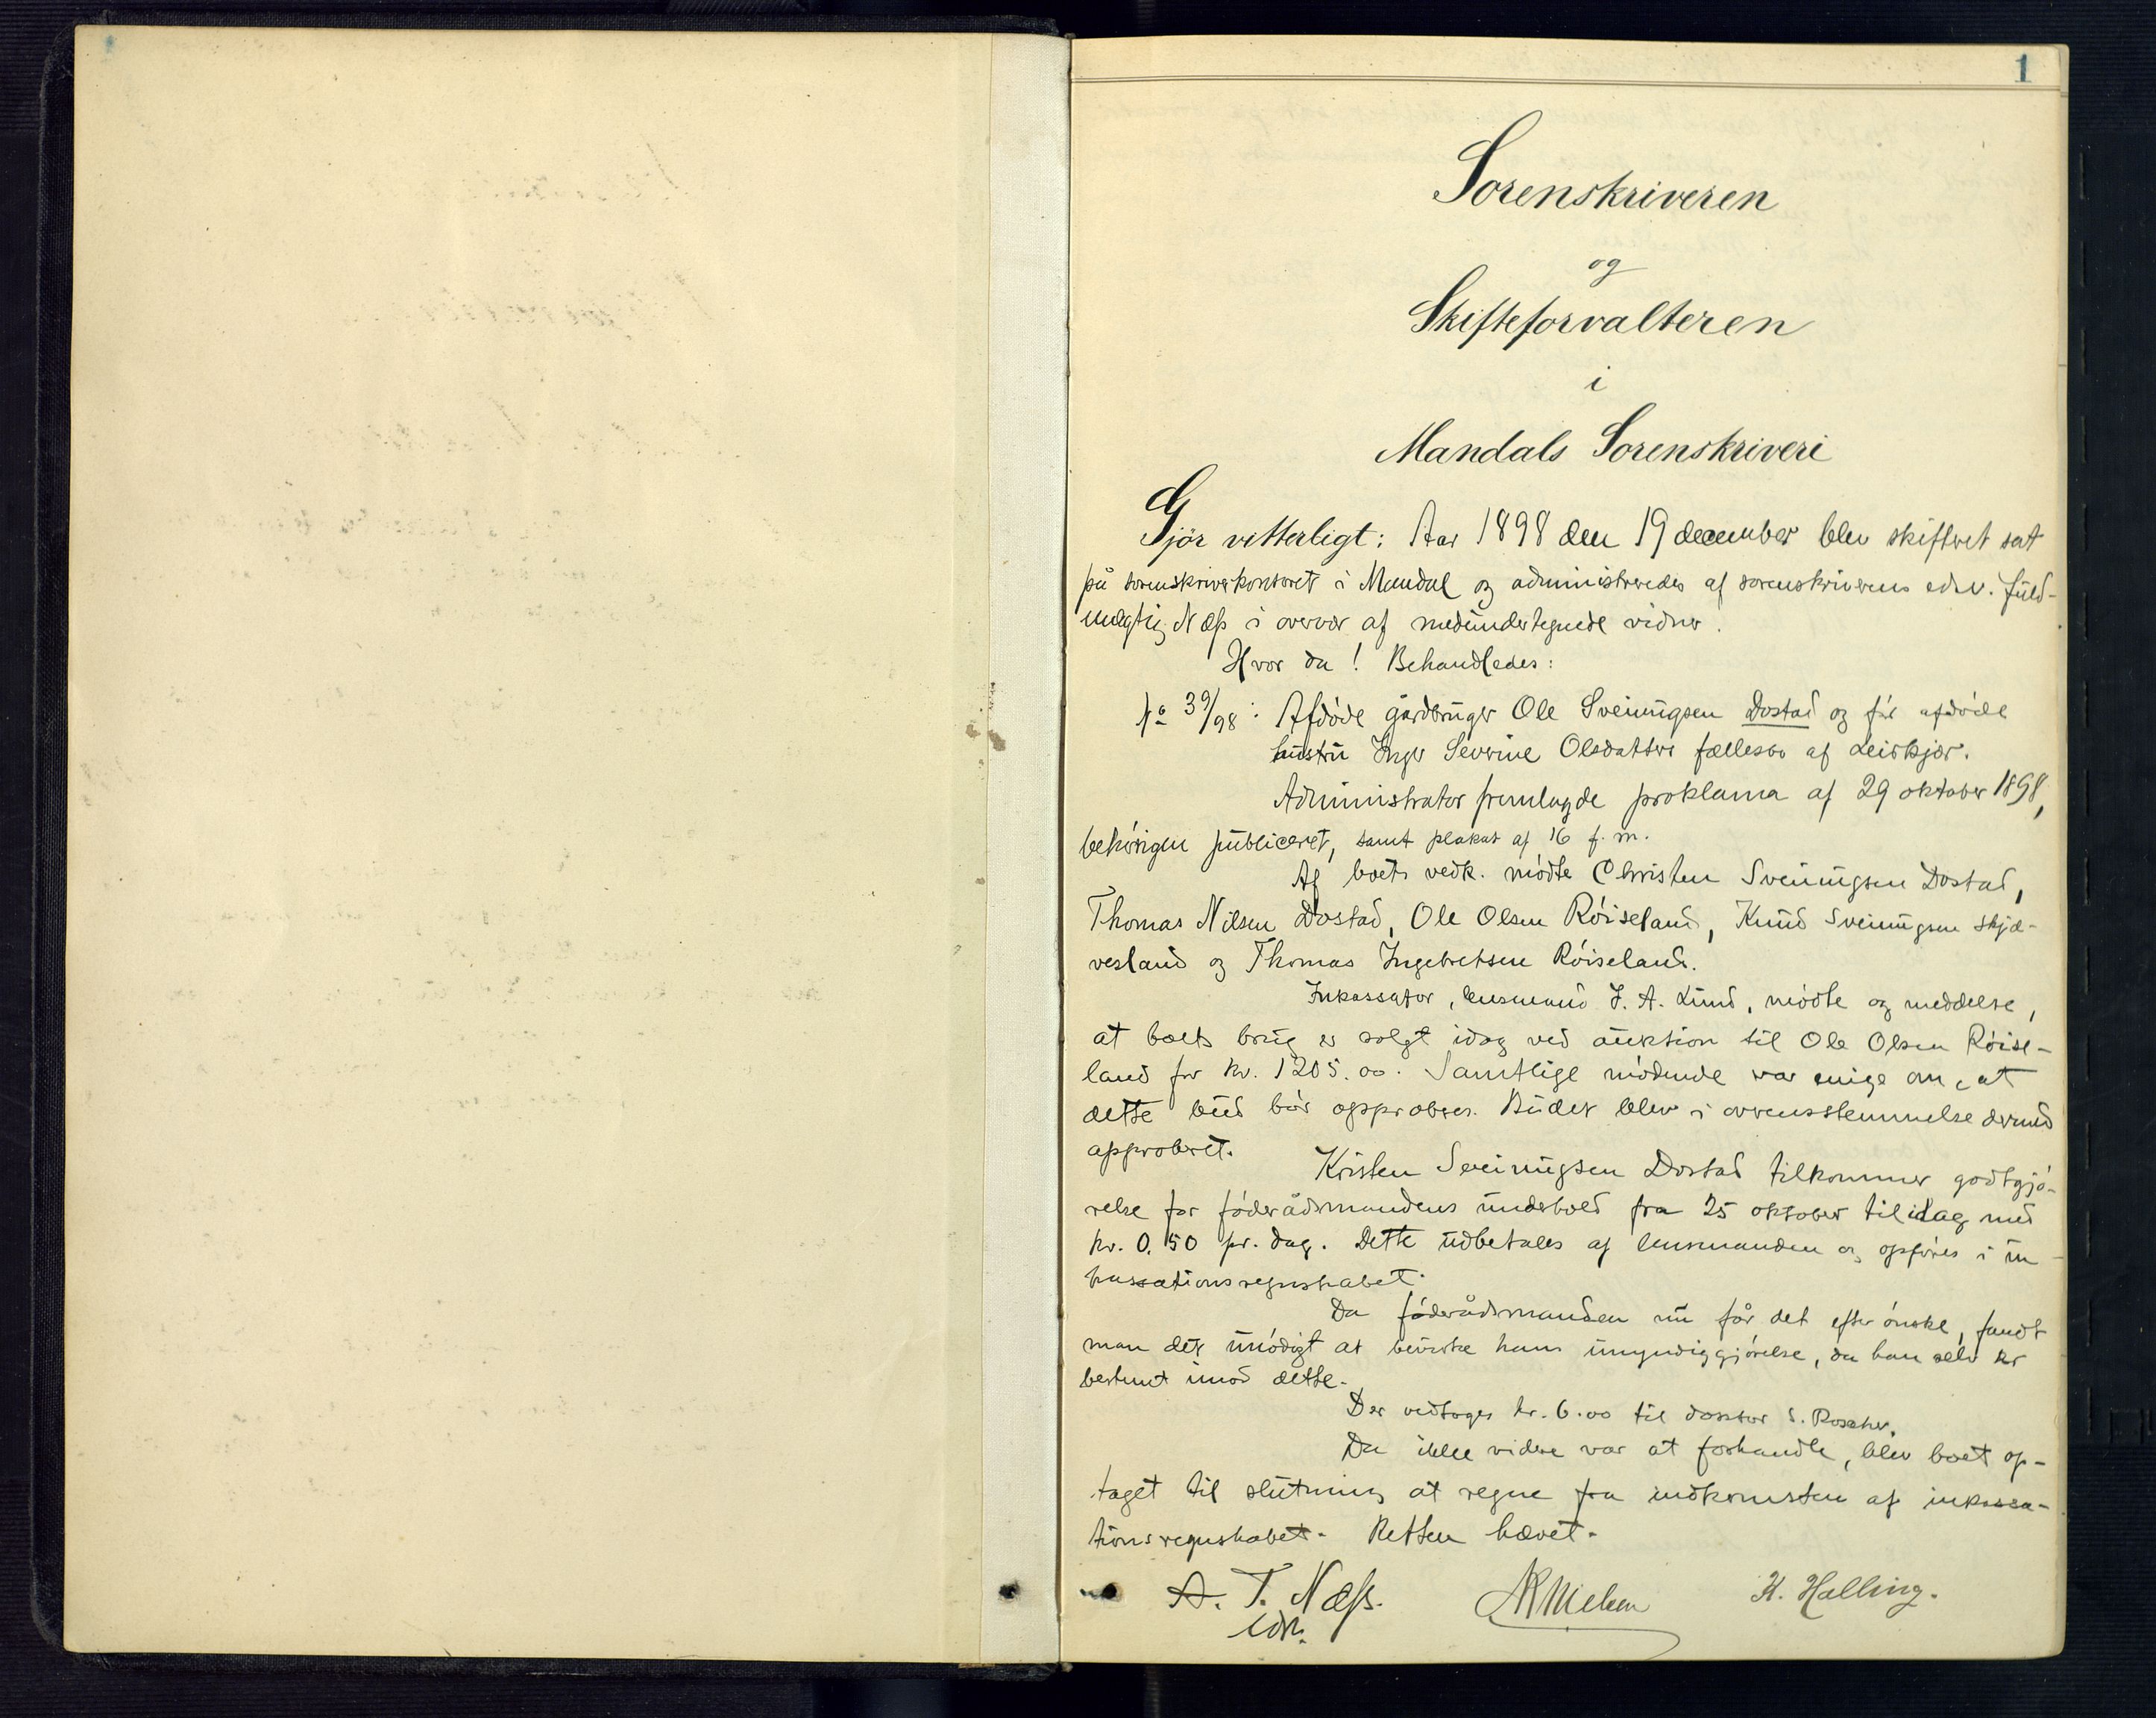 1
Sorenskriveren
og
Skifteforvalteren
i
Mandals Sorenskriveri
Gjör vitterligt: Aar 1898 den 19 december blev skifteret sat
på sorenskriverkontoret i Mandal og administreredes af sorenskriverens edsv. fuld-
mægtig Næss i overvær af medundertegnede vidner.
Hvor da! Behandledes:
No 39/98: Afdöde gårdbruger Ole Sveinungsen Dostad og för afdöde
hustru Inger Severine Olsdatters fællesbo af Leirkjær.
Administrator fremlagde proklama af 29 oktober 1898,
behörigen publiceret, samt plakat af 16 f. m.
Af boets vedk. mödte Christen Sveinungsen Dostad,
Thomas Nilsen Dostad, Ole Olsen Röiseland, Knud Sveinungsen Skjæ-
vesland og Thomas Ingebretsen Röiseland.
Inkassator, lensmand J. A. Lund, mödte og meddelte,
at boets brug er solgt idag ved auktion til Ole Olsen Röise-
land for kr. 1205.00. Samtlige mödende var enige om, at
dette bud bör approberes. Budet blev i overensstemmelse dermed
approberet.
Kristen Sveinungsen Dostad tilkommer godtgjö-
relse for föderådsmandens underhold fra 25 oktober til idag med
kr. 0.50 pr. dag. Dette udbetales af lensmanden og opföres i in-
kassationsregnskabet.
Da föderådsmanden nu får det efter önske, fandt
man det unödigt at bevirke hans umyndiggjörelse, da han selv er
bestemt imod dette.
Der vedtoges kr. 6.00 til doktor S. Roscher.
Da ikke videre var at forhandle, blev boet op-
taget til slutning at regne fra indkomsten af inkassa-
tionsregnskabet. Retten hævet.
A. T. Næss. Nielsen K. Halling.
edsv.